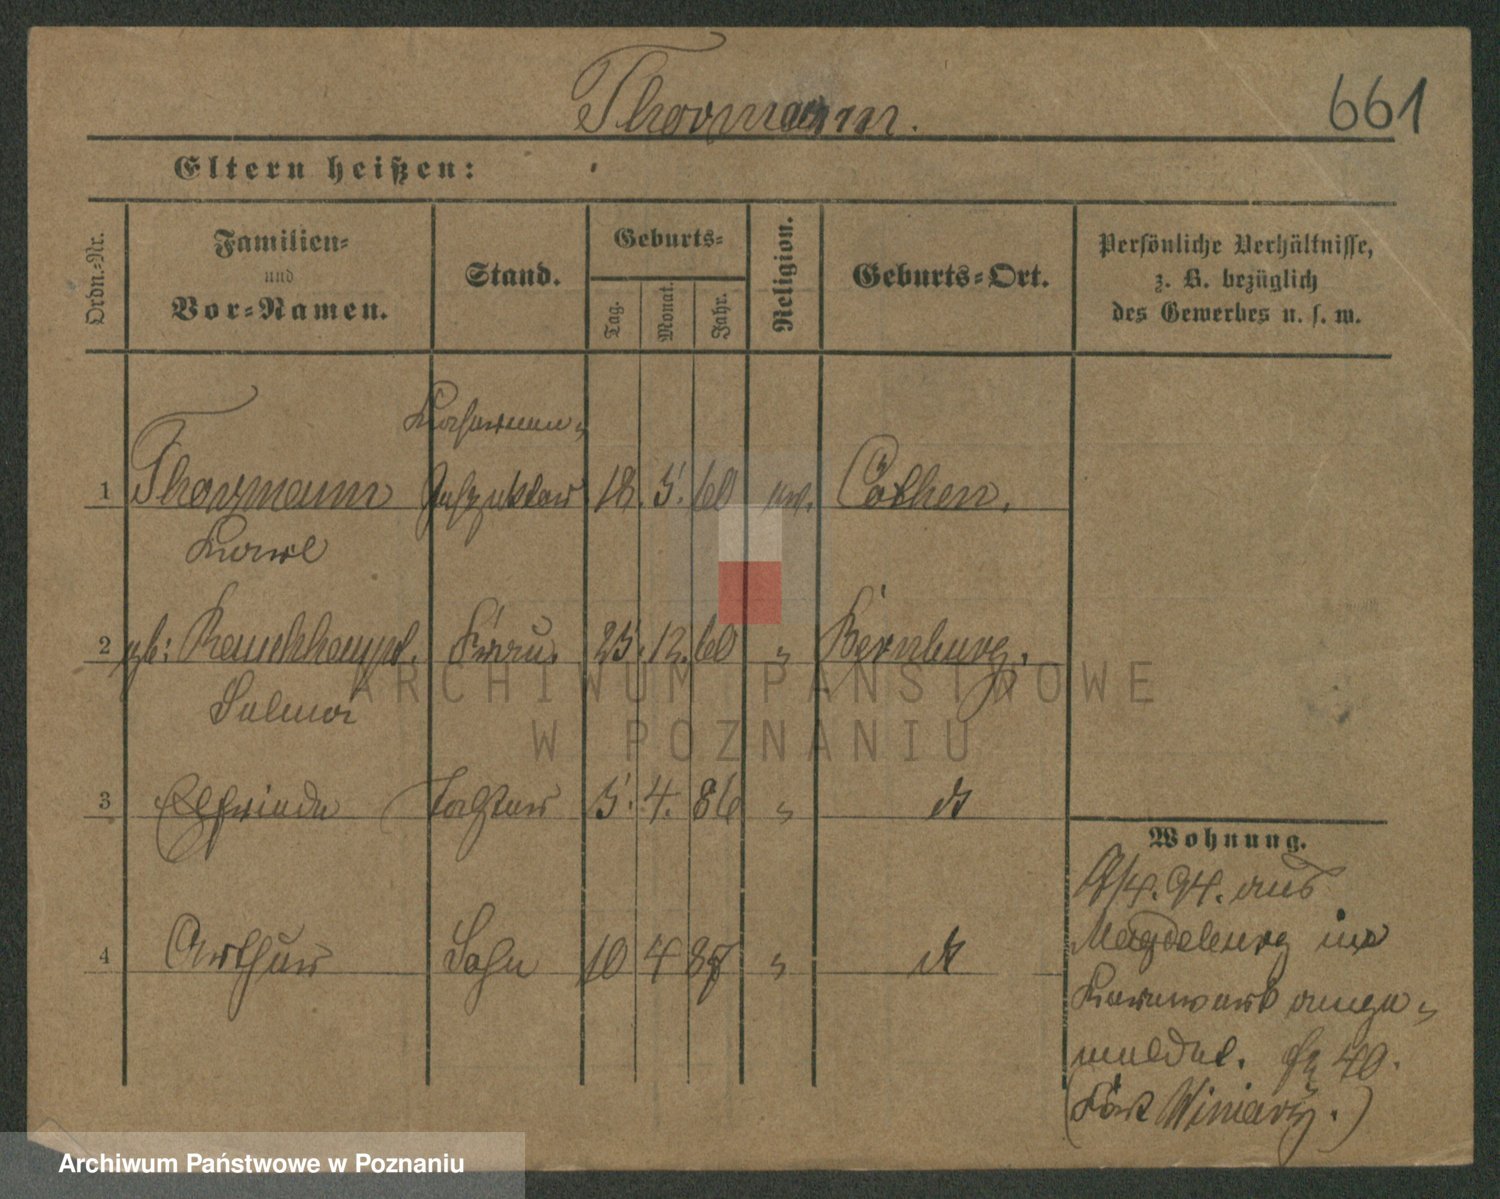 Thormann.
661
Eltern heißen:
Ordn.-Nr.
Familien-
und
Vor-Namen.
Stand.
Geburts-
Tag.
Monat.
Jahr.
Religion.
Geburts-Ort.
Persönliche Verhältnisse,
z. B. bezüglich
des Gewerbes u. s. w.
Kasernen-
1 Thormann Inspektor 18. 5. 60 ev. Cöthen.
Karl
2 gb: Rauchhaupt. Frau. 25. 12. 60 " Bernburg.
Selma
3 Elfriede Tochter 5. 4. 86 " dt
4 Arthur Sohn 10 4 87 " dt
Wohnung.
4. 94. aus
Magdeburg in
Kernwerk ange-
meldet. 40.
(Fort Winiary.)
ARCHIWUM PAŃSTWOWE
W POZNANIU
Archiwum Państwowe w Poznaniu